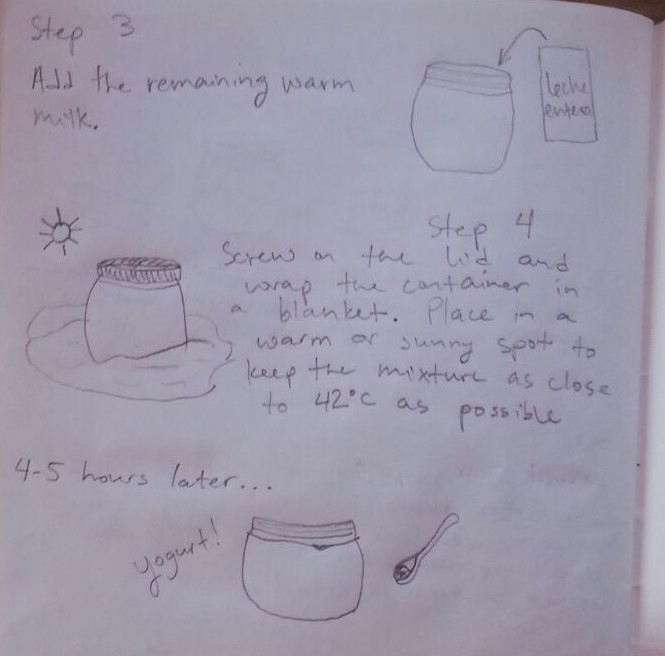 Step 3
Add the remaining warm
milk.
leche
entera
Step 4
Screw on the lid and
wrap the container in
a blanket. Place in a
warm or sunny spot to
keep the mixture as close
to 42°C as possible
4-5 hours later...
yogurt!